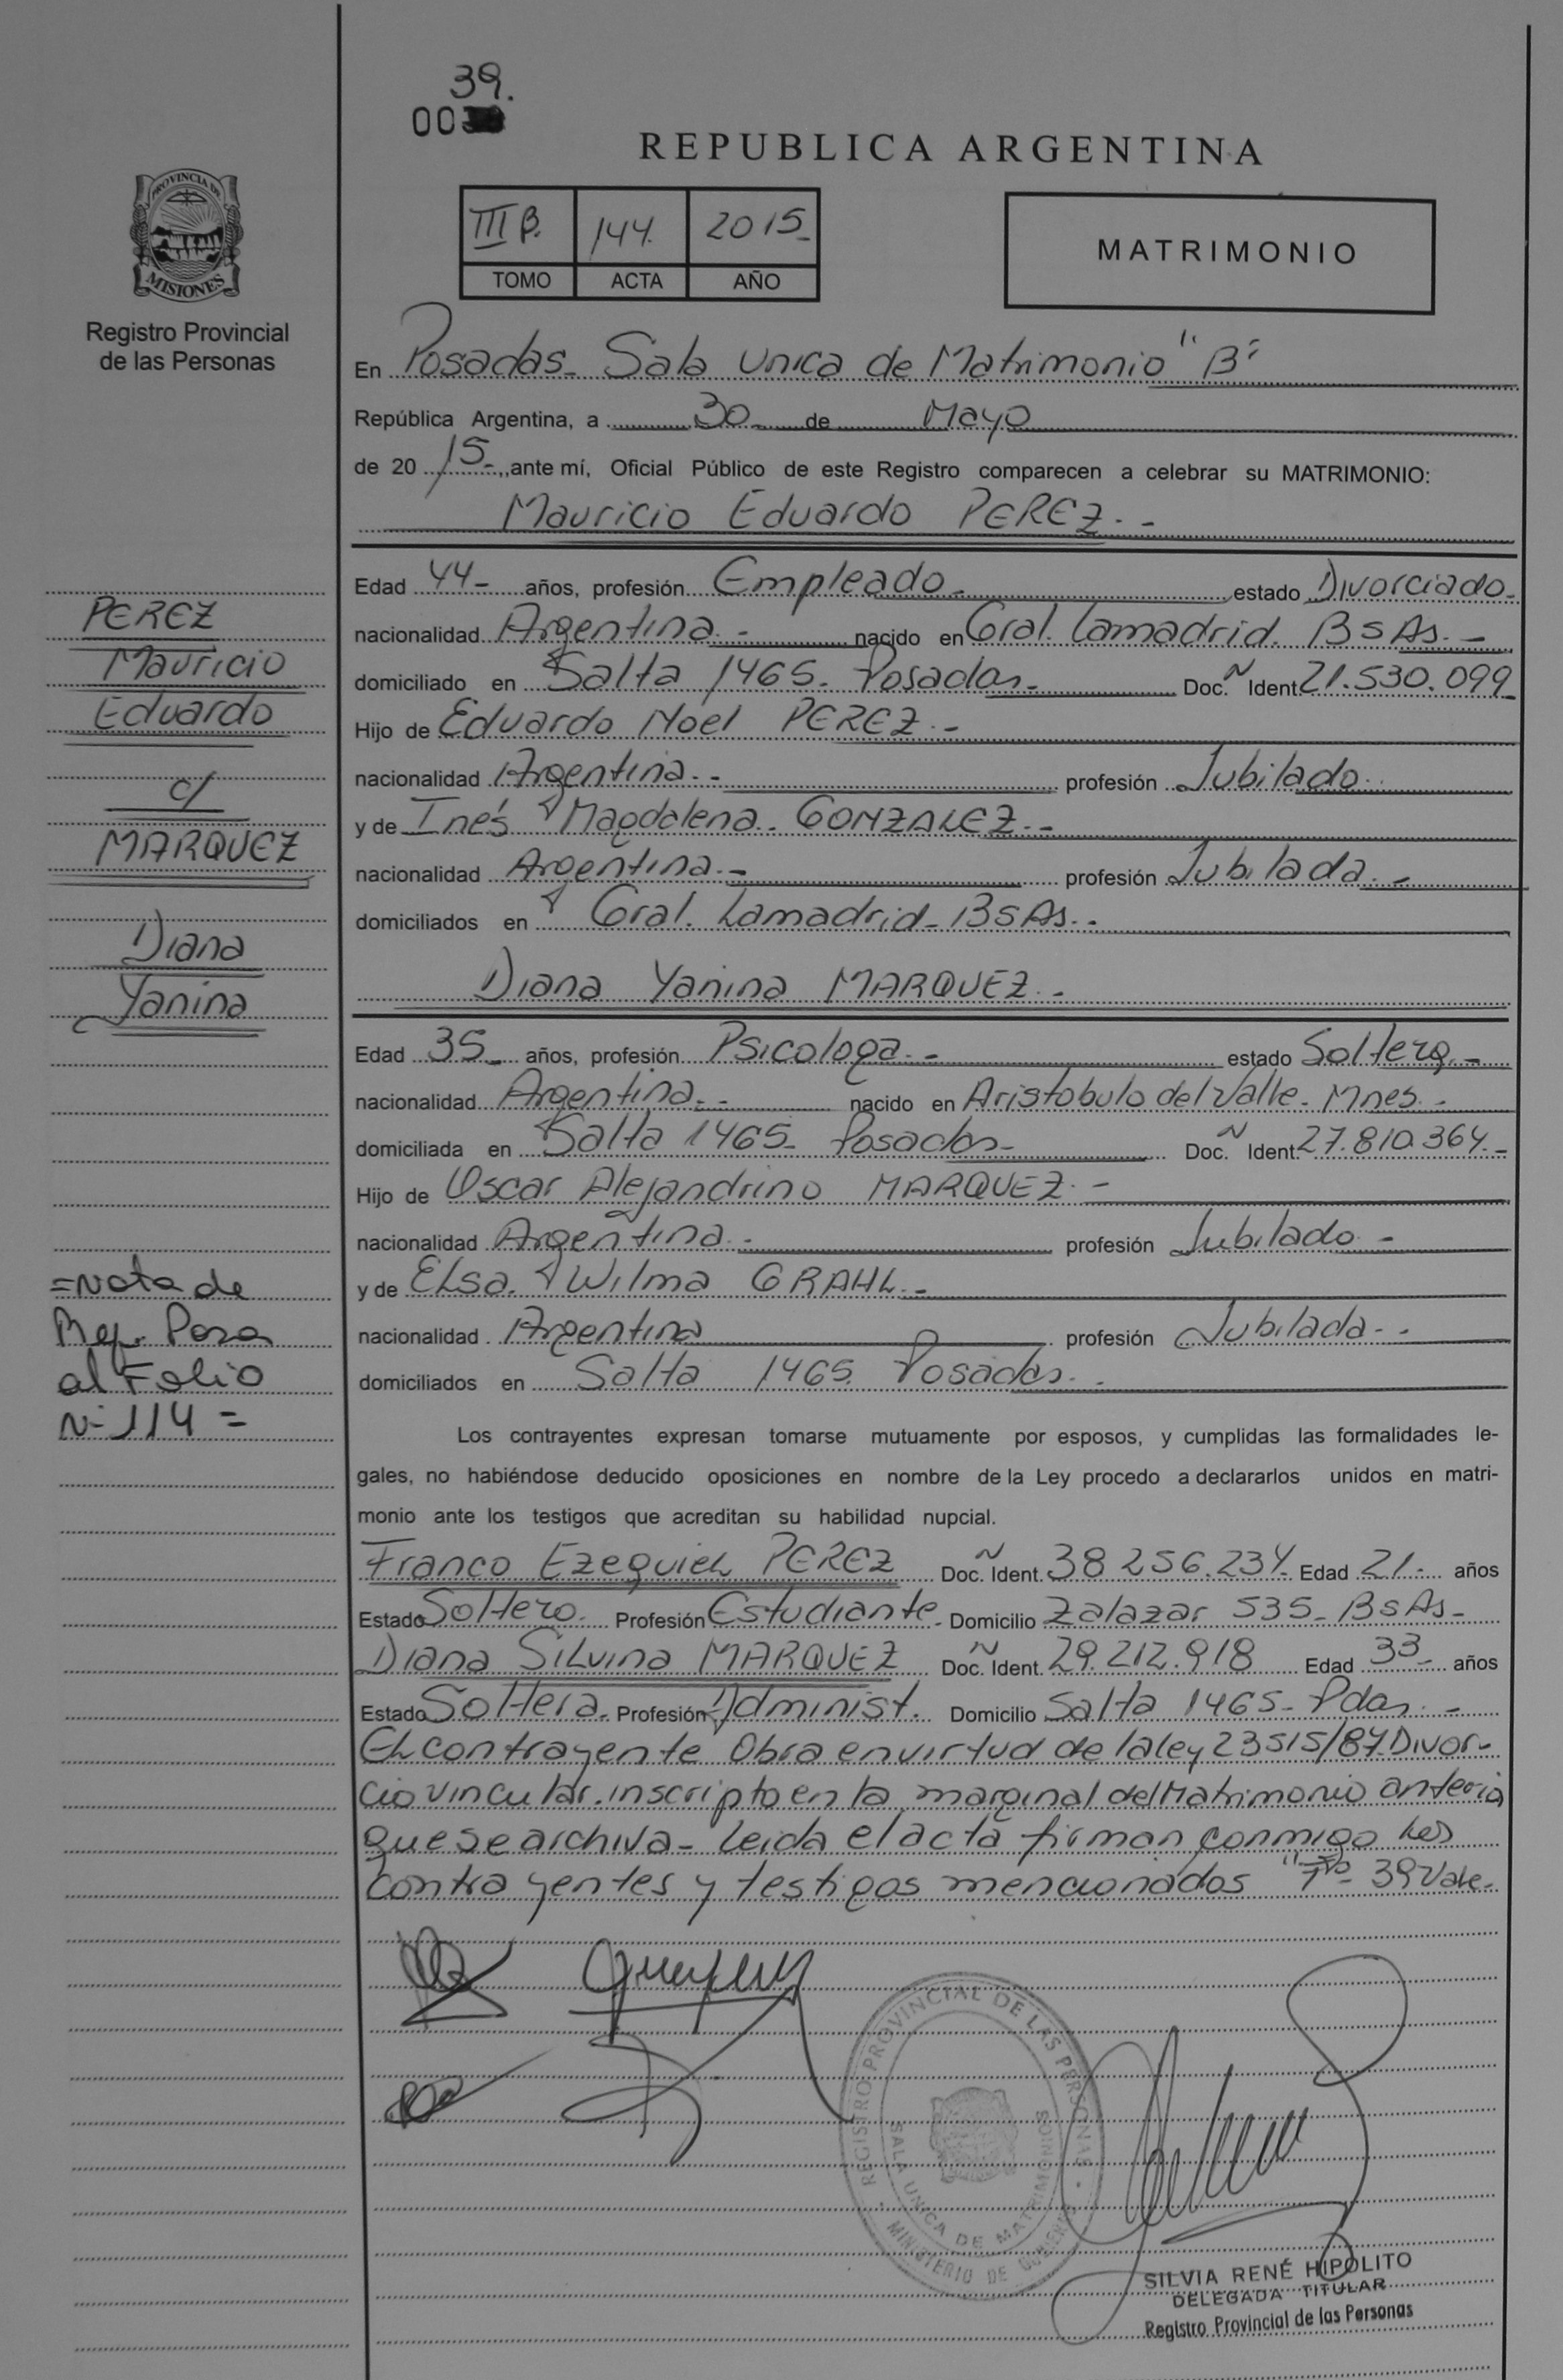 39.
00
REPUBLICA ARGENTINA
III B. 144. 2015-
TOMO ACTA AÑO
MATRIMONIO
PROVINCIA DE
MISIONES
Registro Provincial
de las Personas
En Posadas- Sala Unica de Matrimonio "B"
República Argentina, a 30- de Mayo
de 20 15-, ante mí, Oficial Público de este Registro comparecen a celebrar su MATRIMONIO:
Mauricio Eduardo PEREZ.-
Edad 44- años, profesión Empleado- estado Divorciado-
nacionalidad Argentina.- nacido en Gral. Lamadrid. Bs As.-
domiciliado en Salta 1465- Posadas- Doc. Ident. 21.530.099
Hijo de Eduardo Noel PEREZ.-
nacionalidad Argentina.- profesión Jubilado.
y de Inés Magdalena GONZALEZ.-
nacionalidad Argentina.- profesión Jubilada.-
domiciliados en Gral. Lamadrid- Bs As.-
Diana Yanina MARQUEZ.-
Edad 35- años, profesión Psicologa.- estado Soltera.-
nacionalidad Argentina.- nacido en Aristobulo del Valle- Mnes.-
domiciliada en Salta 1465- Posadas- Doc. Ident. 27.810.364.-
Hijo de Oscar Alejandrino MARQUEZ.-
nacionalidad Argentina.- profesión Jubilado-
y de Elsa Wilma GRAHL.-
nacionalidad Argentina profesión Jubilada.-
domiciliados en Salta 1465. Posadas.-
PEREZ
Mauricio
Eduardo
c/
MARQUEZ
Diana
Yanina
=Nota de
Ref. Pasa
al Folio
N- 114 =
Los contrayentes expresan tomarse mutuamente por esposos, y cumplidas las formalidades le-
gales, no habiéndose deducido oposiciones en nombre de la Ley procedo a declararlos unidos en matri-
monio ante los testigos que acreditan su habilidad nupcial.
Franco Ezequiel PEREZ Doc. Ident. 38 256.234- Edad 21- años
Estado Soltero. Profesión Estudiante- Domicilio Zalazar 535- Bs As-
Diana Silvina MARQUEZ Doc. Ident. 29.212.918 Edad 33- años
Estado Soltera. Profesión Administ. Domicilio Salta 1465- Pdas.-
El contrayente Obra en virtud de la ley 23515/87. Divor-
cio vincular. inscripto en la marginal del Matrimonio anterio
que se archiva- Leida el acta firman conmigo los
contrayentes y testigos mencionados "Fº- 39 Vale-
REGISTRO PROVINCIAL DE LAS PERSONAS
SALA UNICA DE MATRIMONIOS
MINISTERIO DE GOBIERNO
SILVIA RENÉ HIPÓLITO
DELEGADA TITULAR
Registro Provincial de las Personas